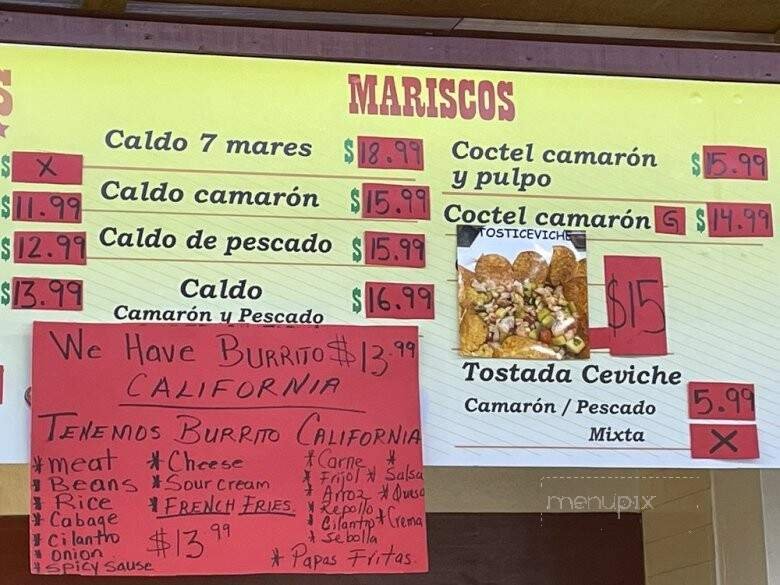 S
MARISCOS
$ X
$ 11.99
$ 12.99
$ 13.99
Caldo 7 mares $ 18.99
Caldo camarón $ 15.99
Caldo de pescado $ 15.99
Caldo $ 16.99
Camarón y Pescado
Coctel camarón $ 15.99
y pulpo
Coctel camarón G $ 14.99
TOSTICEVICHE
$15
Tostada Ceviche
Camarón / Pescado 5.99
Mixta X
We Have BURRITO $13.99
CALIFORNIA
TENEMOS BURRITO CALIFORNIA
*meat
*Beans
*Rice
*Cabage
*Cilantro
*onion
*Spicy sause
*Cheese
*Sour cream
*FRENCH FRIES
$13.99
*Carne *
*Frijol * Salsa
*Arroz * Queso
*Repollo
*Cilantro * Crema
*Sebolla
* Papas Fritas.
menupix